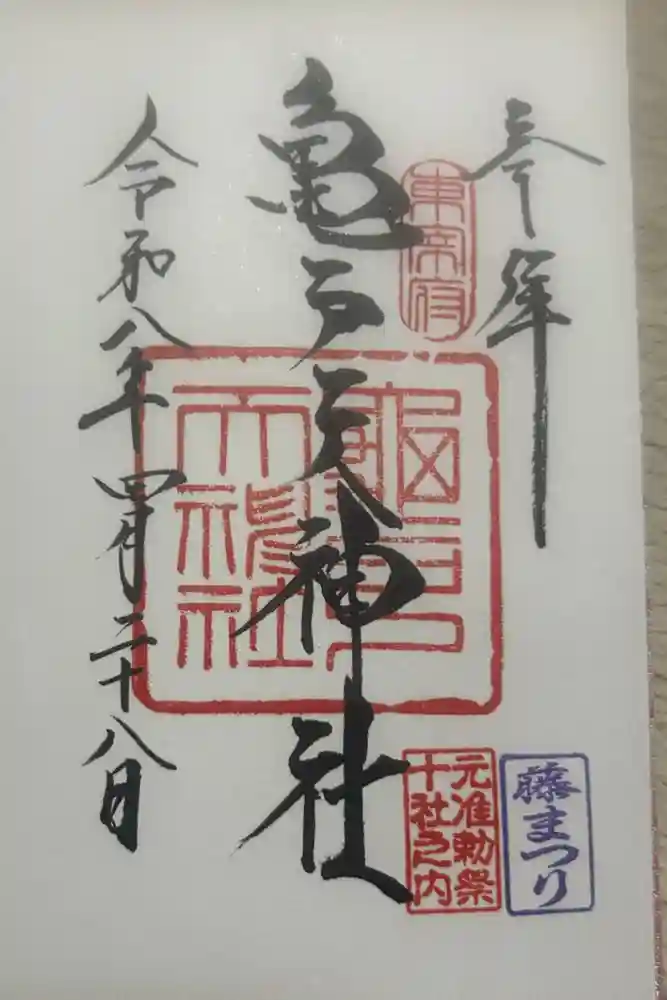 奉拝
東宰府
亀戸天神社
亀戸
天神社
令和八年四月二十八日
元准勅祭
十社之内
藤まつり